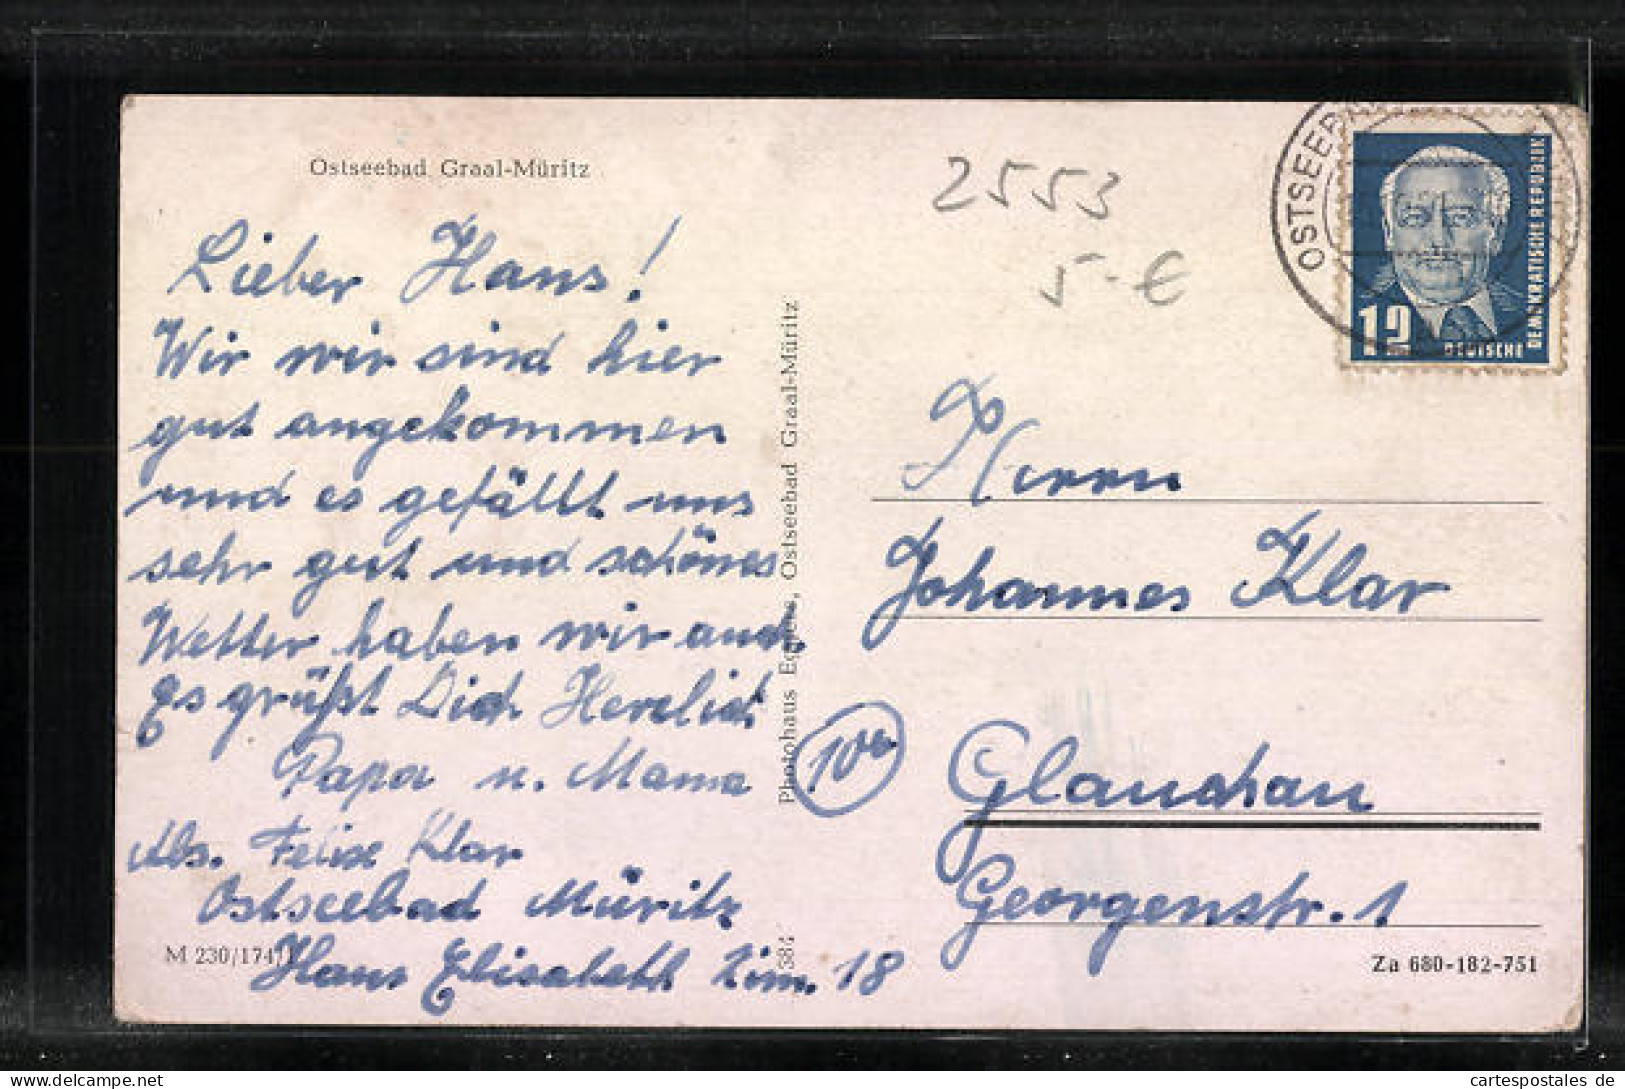 Ostseebad Graal-Müritz
Lieber Hans!
Wir wir sind hier
gut angekommen
und es gefällt uns
sehr gut und schönes
Wetter haben wir auch.
Es grüßt Dich Herzlich
Papa u. Mama
Abs. Felix Klar
Ostseebad Müritz
Haus Elisabeth Zim. 18
M 230/174/1
Photohaus Ostseebad Graal-Müritz
384
2553
5-€
OSTSEEBAD
12
DEUTSCHE
DEMOKRATISCHE REPUBLIK
Herrn
Johannes Klar
(10b)
Glauchau
Georgenstr. 1
Za 680-182-751
www.cartespostales.de